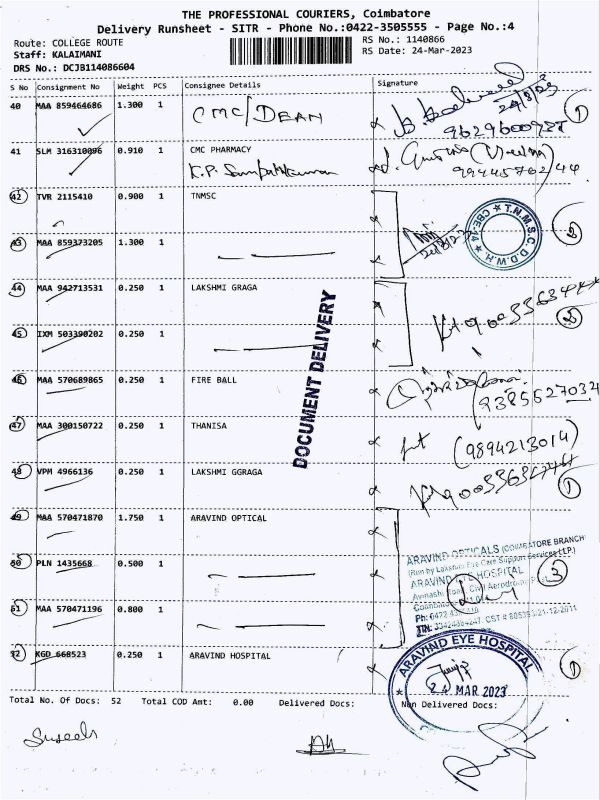 THE PROFESSIONAL COURIERS, Coimbatore
Delivery Runsheet - SITR - Phone No.:0422-3505555 - Page No.:4
Route: COLLEGE ROUTE RS No.: 1140866
Staff: KALAIMANI RS Date: 24-Mar-2023
DRS No.: DCJB114086604
S No Consignment No Weight PCS Consignee Details Signature
40 MAA 859464686 1.300 1 CMC/DEAN 24/3/23 1
9629600938
41 SLM 316310096 0.910 1 CMC PHARMACY
42 TVR 2115410 0.900 1 TNMSC
T.N.M.S.C. D.D.W.H. CBE-14 2
43 MAA 859373205 1.300 1
44 MAA 942713531 0.250 1 LAKSHMI GRAGA
2
45 IXM 503390202 0.250 1
46 MAA 570689865 0.250 1 FIRE BALL
9385627032
47 MAA 300150722 0.250 1 THANISA
(9894213014)
48 VPM 4966136 0.250 1 LAKSHMI GGRAGA 1
49 MAA 570471870 1.750 1 ARAVIND OPTICAL
ARAVIND OPTICALS (COIMBATORE BRANCH
(Run by Lakshmi Eye Care Support Services LLP.)
50 PLN 1435668 0.500 1 ARAVIND EYE HOSPITAL 3
Avinashi Road, Civil Aerodrome Post
Coimbatore
51 MAA 570471196 0.800 1
52 KGD 668523 0.250 1 ARAVIND HOSPITAL ARAVIND EYE HOSPITAL 1
24 MAR 2023
DOCUMENT DELIVERY
Total No. Of Docs: 52 Total COD Amt: 0.00 Delivered Docs: Non Delivered Docs: